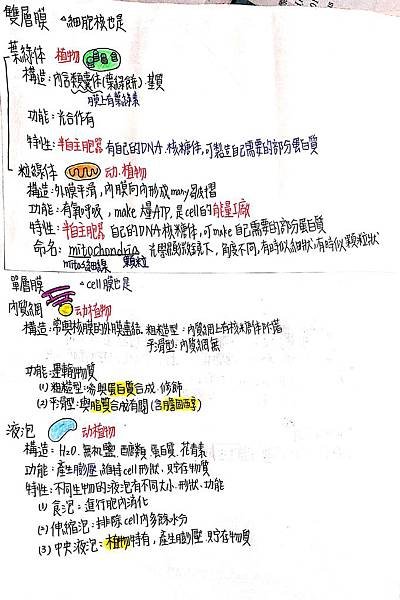 雙層膜 △細胞核也是
葉綠体 植物
構造:內含類囊体(葉綠餅)、基質
膜上有葉綠素
功能:光合作有
特性:半自主胞器 有自己的DNA、核糖体,可製造自己需要的部分蛋白質
粒線体 动.植物
構造:外膜平滑,內膜向內形成many皺摺
功能:有氧呼吸,make 大量ATP,是cell的能量工廠
特性:半自主胞器 自己的DNA、核糖体,可make自己需要的部分蛋白質
命名:mitochondria 光學顯微鏡下,角度不同,有時似細狀,有時似顆粒狀
mitos細線 顆粒
單層膜 △cell膜也是
內質網 动植物
構造:常與核膜的外膜連結 粗糙型:內質網上有核糖体附著
平滑型:內質網無
功能:運輸物質
(1) 粗糙型:參與蛋白質合成、修飾
(2) 平滑型:與脂質合成有關(含膽固醇)
液泡 动植物
構造:H2O、無机鹽、醣類、蛋白質、花青素
功能:產生膨壓,維持cell形狀、貯存物質
特性:不同生物的液泡有不同大小、形狀、功能
(1) 食泡:進行胞內消化
(2) 伸縮泡:排除cell內多餘水分
(3) 中央液泡:植物特有,產生膨壓、貯存物質